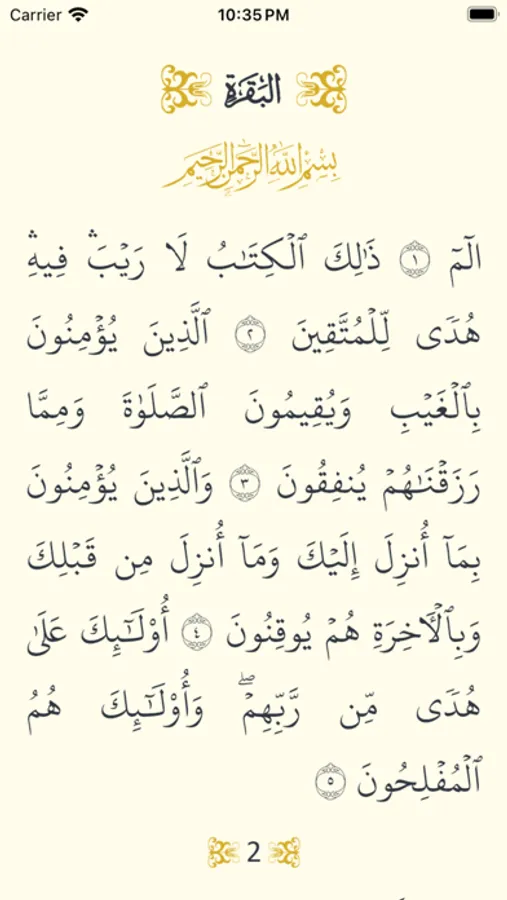 Carrier 10:35 PM
البَقَرَةِ
بِسْمِ اللَّهِ الرَّحْمَٰنِ الرَّحِيمِ
الٓمٓ ١ ذَٰلِكَ ٱلْكِتَـٰبُ لَا رَيْبَ ۛ فِيهِ ۛ
هُدًى لِّلْمُتَّقِينَ ٢ ٱلَّذِينَ يُؤْمِنُونَ
بِٱلْغَيْبِ وَيُقِيمُونَ ٱلصَّلَوٰةَ وَمِمَّا
رَزَقْنَـٰهُمْ يُنفِقُونَ ٣ وَٱلَّذِينَ يُؤْمِنُونَ
بِمَآ أُنزِلَ إِلَيْكَ وَمَآ أُنزِلَ مِن قَبْلِكَ
وَبِٱلْـَٔاخِرَةِ هُمْ يُوقِنُونَ ٤ أُو۟لَـٰٓئِكَ عَلَىٰ
هُدًى مِّن رَّبِّهِمْ ۖ وَأُو۟لَـٰٓئِكَ هُمُ
ٱلْمُفْلِحُونَ ٥
2